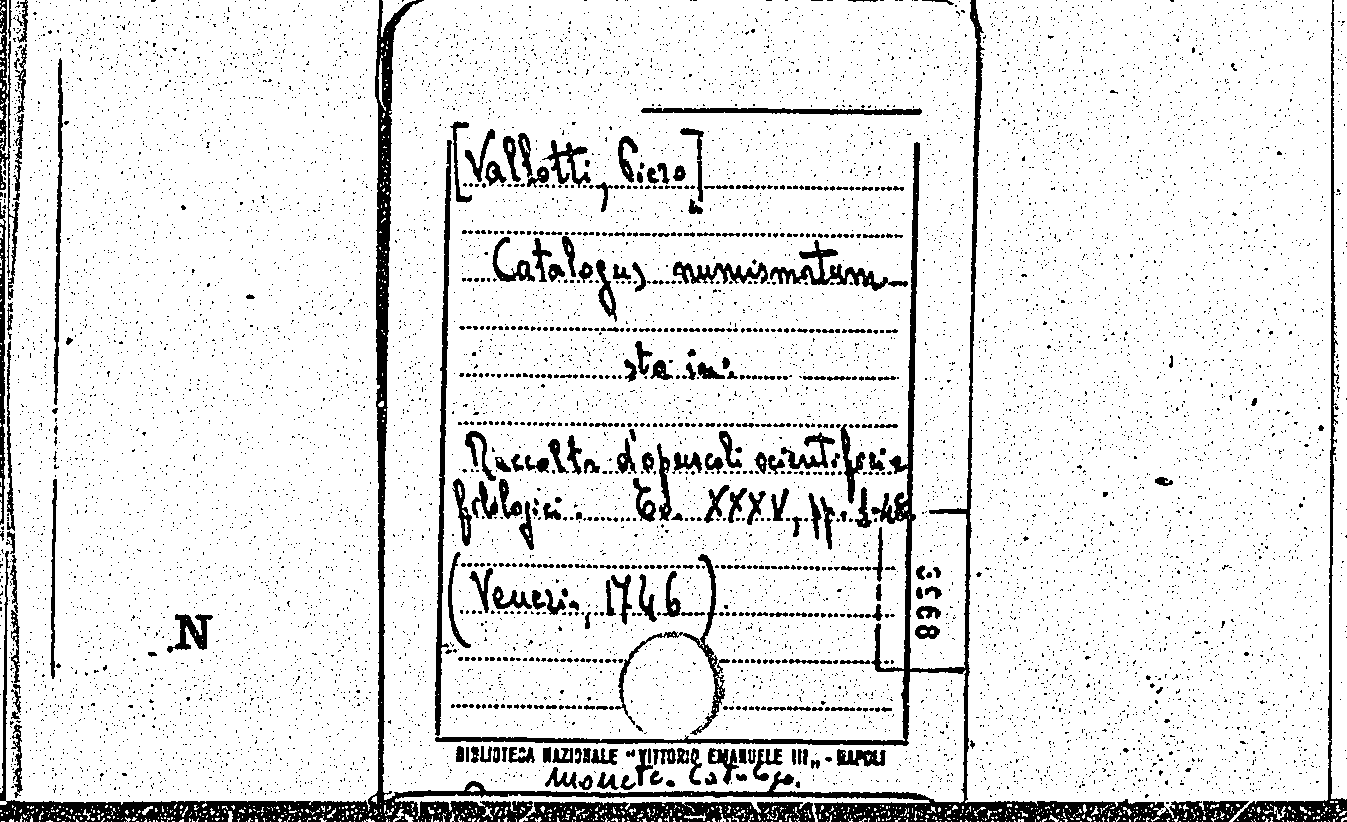 [Vallotti, Piero]
Catalogus numismatum.
sta in:
Raccolta d'opuscoli scientifici e
filologici. Ed. XXXV, pp. 1-48.
(Venezia, 1746)
3568
N
BIBLIOTECA NAZIONALE "VITTORIO EMANUELE III" - NAPOLI
Monete. Catalogo.